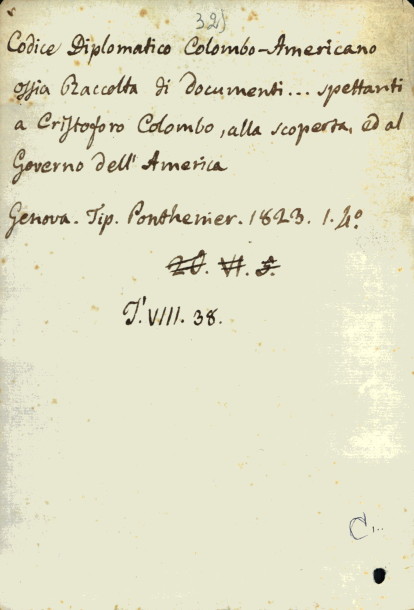 325
Codice Diplomatico Colombo-Americano
ossia Raccolta di Documenti... spettanti
a Cristoforo Colombo, alla scoperta, ed al
Governo dell' America
Genova. Tip. Ponthenier. 1823. 1. 4.º
20. VI. 5.
T. VIII. 38.
C...